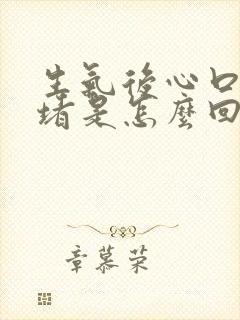 生氣後心口
堵是怎麼回
章慕荣